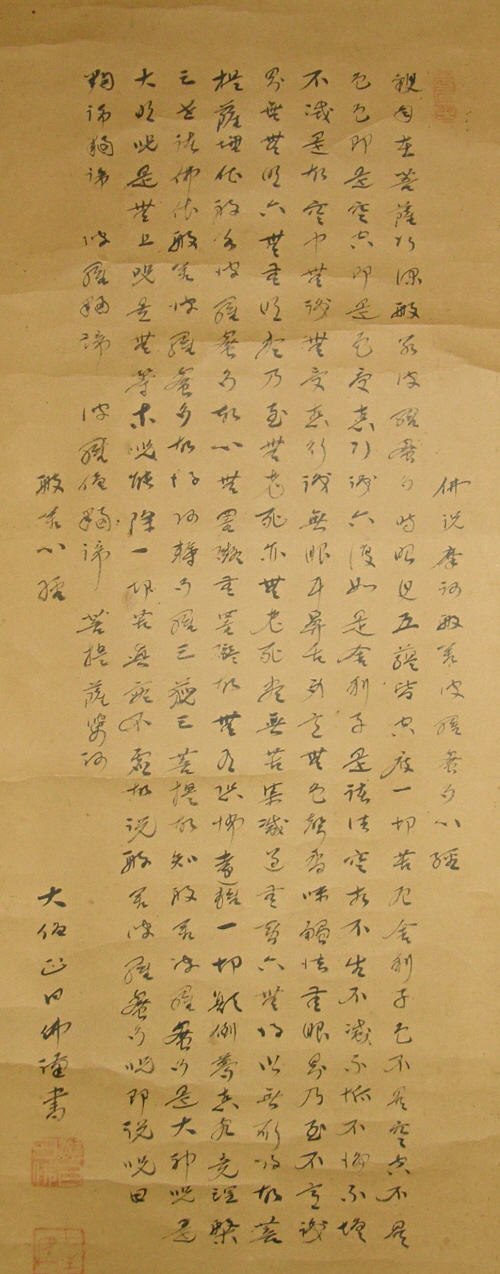 佛説摩訶般若波羅蜜多心經
観自在菩薩行深般若波羅蜜多時照見五蘊皆空度一切苦厄舍利子色不異空空不異
色色即是空空即是色受想行識亦復如是舍利子是諸法空相不生不滅不垢不浄不増
不減是故空中無色無受想行識無眼耳鼻舌身意無色聲香味觸法無眼界乃至無意識
界無無明亦無無明盡乃至無老死亦無老死盡無苦集滅道無智亦無得以無所得故菩
提薩埵依般若波羅蜜多故心無罣礙無罣礙故無有恐怖遠離一切顛倒夢想究竟涅槃
三世諸佛依般若波羅蜜多故得阿耨多羅三藐三菩提故知般若波羅蜜多是大神呪是
大明呪是無上呪是無等等呪能除一切苦真實不虚故説般若波羅蜜多呪即説呪曰
羯諦羯諦 波羅羯諦 波羅僧羯諦 菩提薩婆訶
般若心經
書